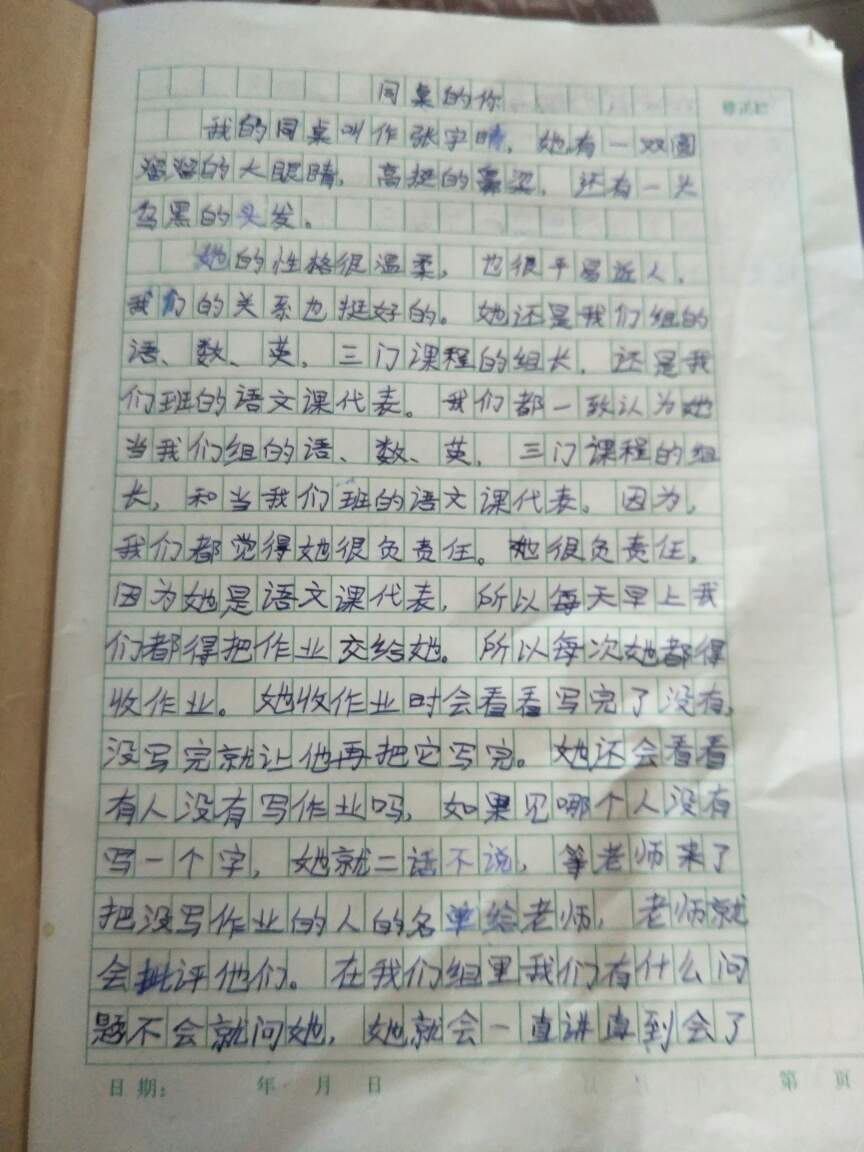 同桌的你
我的同桌叫作张宇晴，她有一双圆
溜溜的大眼睛，高挺的鼻梁，还有一头
乌黑的头发。
她的性格很温柔，也很平易近人，
我们的关系也挺好的。她还是我们组的
语、数、英，三门课程的组长，还是我
们班的语文课代表。我们都一致认为她
当我们组的语、数、英，三门课程的组
长，和当我们班的语文课代表。因为，
我们都觉得她很负责任。她很负责任，
因为她是语文课代表，所以每天早上我
们都得把作业交给她。所以每次她都得
收作业。她收作业时会看看写完了没有，
没写完就让他再把它写完。她还会看看
有人没有写作业吗，如果见哪个人没有
写一个字，她就二话不说，等老师来了
把没写作业的人的名单给老师，老师就
会批评他们。在我们组里我们有什么问
题不会就问她，她就会一直讲直到会了
日期： 年 月 日 第 页